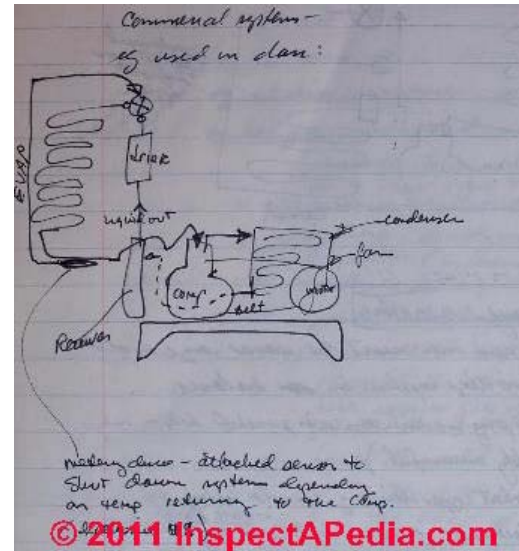 Commercial systems -
eg used in class:
EVAP
drier
liquid out
condenser
fan
comp
motor
belt
Receiver
metering device - attached sensor to
shut down system depending
on temp returning to the comp.
© 2011 InspectAPedia.com